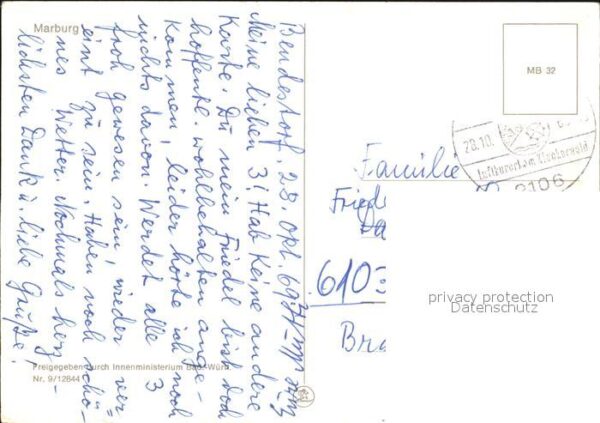 Marburg
Bendestorf, 28. Okt. 69.
Meine lieben 3! Hab keine andere
Karte. Du mein Friedel bist doch
hoffentl. wohlbehalten ange-
kommen, leider hörte ich noch
nichts davon. Werdet alle 3
froh gewesen sein, wieder ver-
eint zu sein. Haben noch schö-
nes Wetter. Nochmals herz-
lichsten Dank u. liebe Grüße!
Freigegeben durch Innenministerium Bad.-Württ.
Nr. 9/12844
MB 32
28.10.
Luftkurort am Klecker Wald
2106
Familie
Friede
610
Bra
privacy protection
Datenschutz